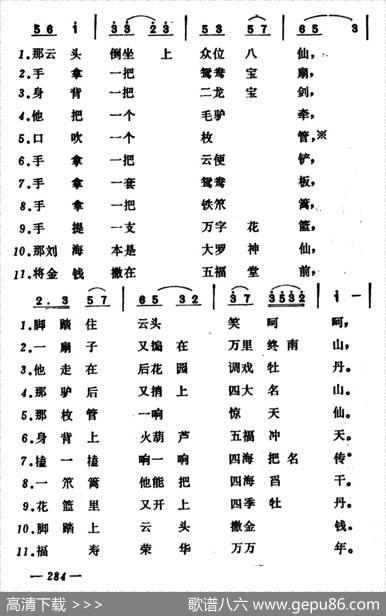 5 6 i | 3 3 2 3 | 3 5 5 7 | 6 5 3 |
1.那云头 倒坐上 众位八 仙，
2.手拿 一把 鸳鸯宝 扇，
3.身背 一把 二龙宝 剑，
4.他把 一个 毛驴 牵，
5.口吹 一个 枚 管，※
6.手拿 一把 云便 铲，
7.手拿 一套 鸳鸯 板，
8.手拿 一把 铁笊 篱，
9.手提 一支 万字花 篮，
10.那刘海 本是 大罗神 仙，
11.将金钱 撒在 五福堂 前，
2. 3 5 7 | 6 5 3 2 | 3 7 3 5 3 2 | i — |
1.脚踏住 云头 笑呵 呵，
2.一扇子 又煽在 万里终南 山，
3.他走在 后花园 调戏牡 丹。
4.那驴后 又捎上 四大名 山。
5.那枚管 一响 惊天 仙。
6.身背上 火葫芦 五福冲 天。
7.搕一搕 响一响 四海把名 传。
8.一笊篱 他能把 四海舀 干。
9.花篮里 又开上 四季牡 丹。
10.脚踏上 云头 撒金 钱。
11.福寿 荣华 万万 年。
— 284 —
高清下载 >>>
歌谱八六 www.gepu86.com